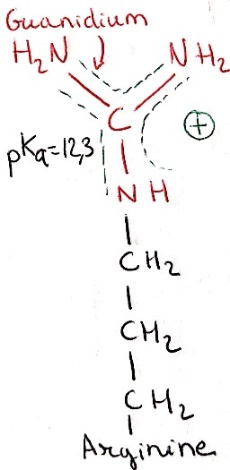 Guanidium
H₂N NH₂
C
⊕
pKa=12,3
NH
CH₂
CH₂
CH₂
Arginine